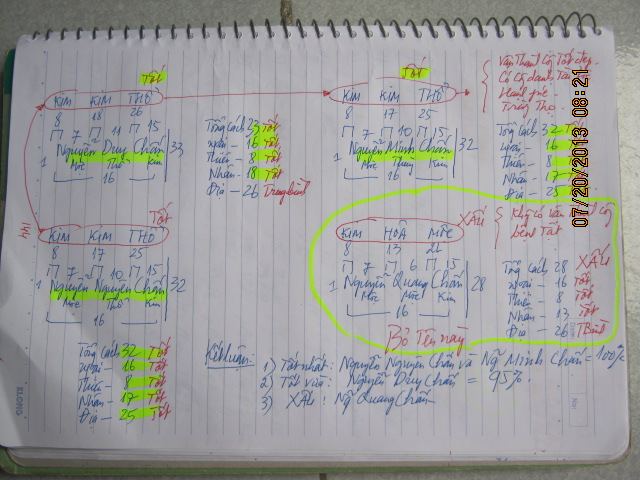 Tốt
KIM KIM THỔ
8 18 26
7 11 15
1 Nguyễn Duy Chấn 33
Mộc Thổ Kim
16
Tổng Cách 23 Tốt
Ngoại - 16 Tốt
Thiên - 8 Tốt
Nhân - 18 Tốt
Địa - 26 Trung bình
Tốt
KIM KIM THỔ
8 17 25
7 10 15
1 Nguyễn Minh Chấn 32
16
Vận Thành Công Tốt đẹp
Có Công danh Tài
Hạnh phúc
Trường Thọ
Tổng Cách 32 Tốt
Ngoại - 16
Thiên - 8
Nhân - 17
Địa - 25
144
Tốt
KIM KIM THỔ
8 17 25
7 10 15
1 Nguyễn Nguyên Chấn 32
Mộc Thổ Kim
16
Tổng Cách 32 Tốt
Ngoại 16 Tốt
Thiên - 8 Tốt
Nhân - 17 Tốt
Địa - 25 Tốt
XẤU
KIM HOẢ MỘC
8 13 21
7 6 15
1 Nguyễn Quang Chấn 28
Mộc Mộc Kim
16
Bỏ Tên này
Không có vận Thành Công
bệnh Tật
Tổng Cách 28 XẤU
Ngoại - 16 Tốt
Thiên - 8 Tốt
Nhân - 13 Tốt
Địa - 26 TBình
Kết luận:
1) Tốt nhất: Nguyễn Nguyên Chấn và Ng~ Minh Chấn = 100%
2) Tốt vừa: Nguyễn Duy Chấn = 95%
3) XẤU: Ng~ Quang Chấn
KLONG
07/20/2013 08:21